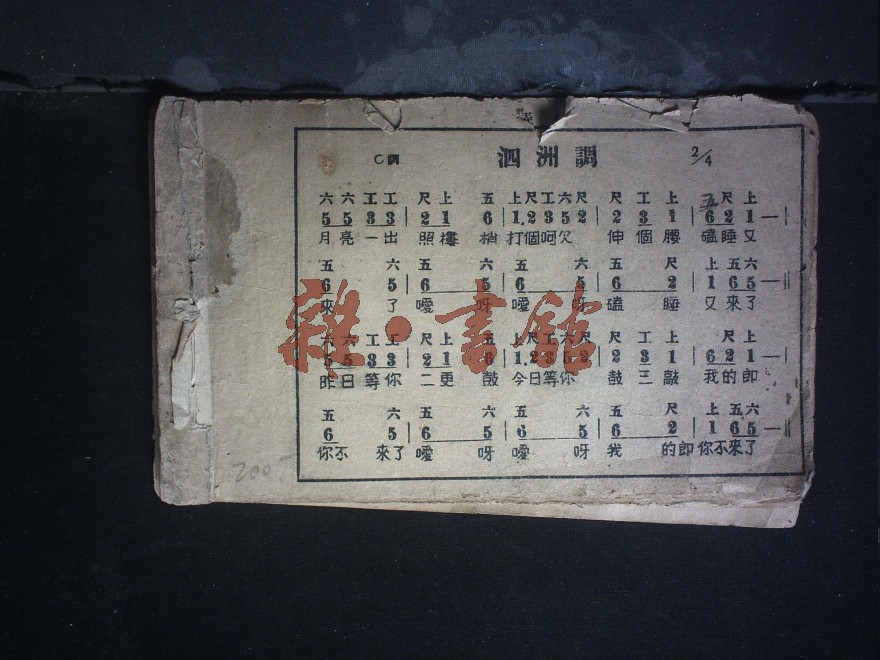 C調 泗洲調 2/4
六六工工 尺上 五 上尺工六尺 尺工上 五尺上
5 5 3 3 | 2 1 6 | 1. 2 3 5 2 | 2 3 1 | 6 2 1 —|
月亮一出 照樓 梢 打個呵欠 伸個腰 磕睡又
五 六 五 六 五 六 五 尺 上五六
6 5 | 6 5 | 6 5 | 6 2 | 1 6 5 —‖
來 了 噯 呀 噯 呀 磕 睡 又來了
雜·書館
六六工工 尺上 五 上尺工六尺 尺工上 尺上
5 5 3 3 | 2 1 6 | 1. 2 3 5 2 | 2 3 1 | 6 2 1 —|
昨日等你 二更 鼓 今日等你 鼓三敲 我的即
五 六 五 六 五 六 五 尺 上五六
6 5 | 6 5 | 6 5 | 6 2 | 1 6 5 —‖
你不 來了 噯 呀 噯 呀 我 的即 你不來了
200